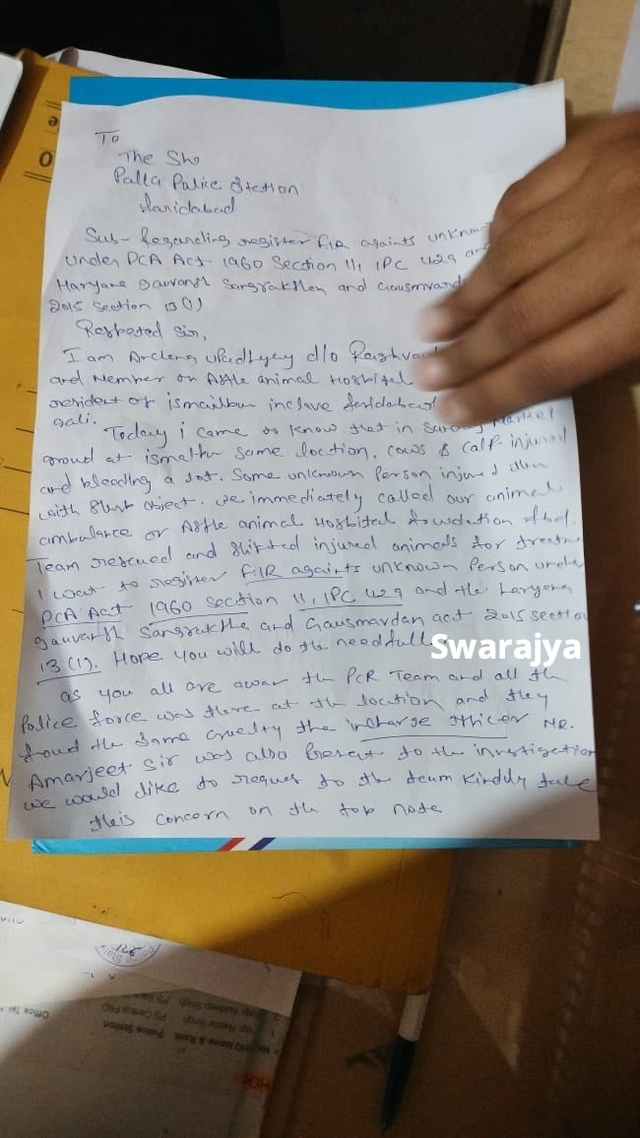 To
The Sho
Palla Police Station
Faridabad
Sub- Regarding register FIR againts unknow
under PCA Act 1960 Section 11, IPC 429 and
Haryana gauvansh Sangrakshan and Gausmvard
2015 Section 13(1)
Respected Sir,
I am Archana upadhyay d/o Raghva
and Member or Asthe animal Hospital
resident of ismailbur inclave faridabad
gali.
Today i came to know that in Market
groud at ismailbur same loction. cows & calf injured
and bleeding a lot. Some unknown Person injured them
with object. we immediately called our animal
ambulance or Asthe animal Hospital foundation fbd.
Team rescued and shifted injured animals for treatme
I want to register FIR againts unknown Person under
PCA Act 1960 Section 11, IPC 429 and the Haryana
gauvansh Sangraksha and Gausmardan act 2015 section
13 (1). Hope you will do the needfull
Swarajya
as you all are awar the PCR Team and all the
Police force was there at the loction and they
foud the same cruelty the incharge officer MR.
Amarjeet Sir was also Present to the investigation
we would like to reques to the team Kinddly take
this concern on the top node
Office Tel
Name & Rank Police Station